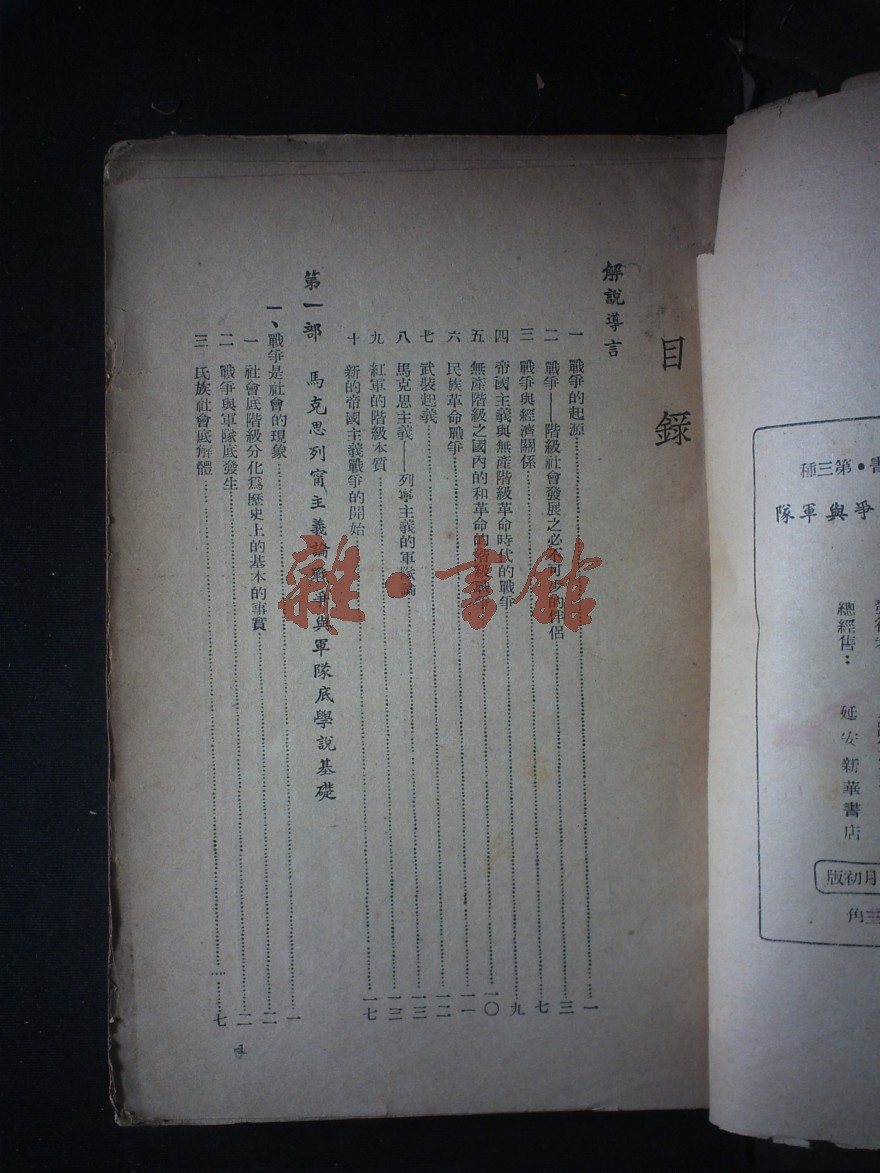 目錄
解說導言
一 戰爭的起源 一
二 戰爭——階級社會發展之必不可少的伴侶 三
三 戰爭與經濟關係 七
四 帝國主義與無產階級革命時代的戰爭 九
五 無產階級之國內的和革命的階級戰爭 一〇
六 民族革命戰爭 一一
七 武裝起義 一二
八 馬克思主義——列寧主義的軍隊論 一三
九 紅軍的階級本質 一三
十 新的帝國主義戰爭的開始 一七
第一部 馬克思列甯主義論戰爭與軍隊底學說基礎
一、戰爭是社會的現象 一
一 社會底階級分化爲歷史上的基本的事實 二
二 戰爭與軍隊底發生 二
三 氏族社會底解體 七
1
書•第三種
爭與軍隊
總經售： 延安新華書店
月初版
角
雜·書館